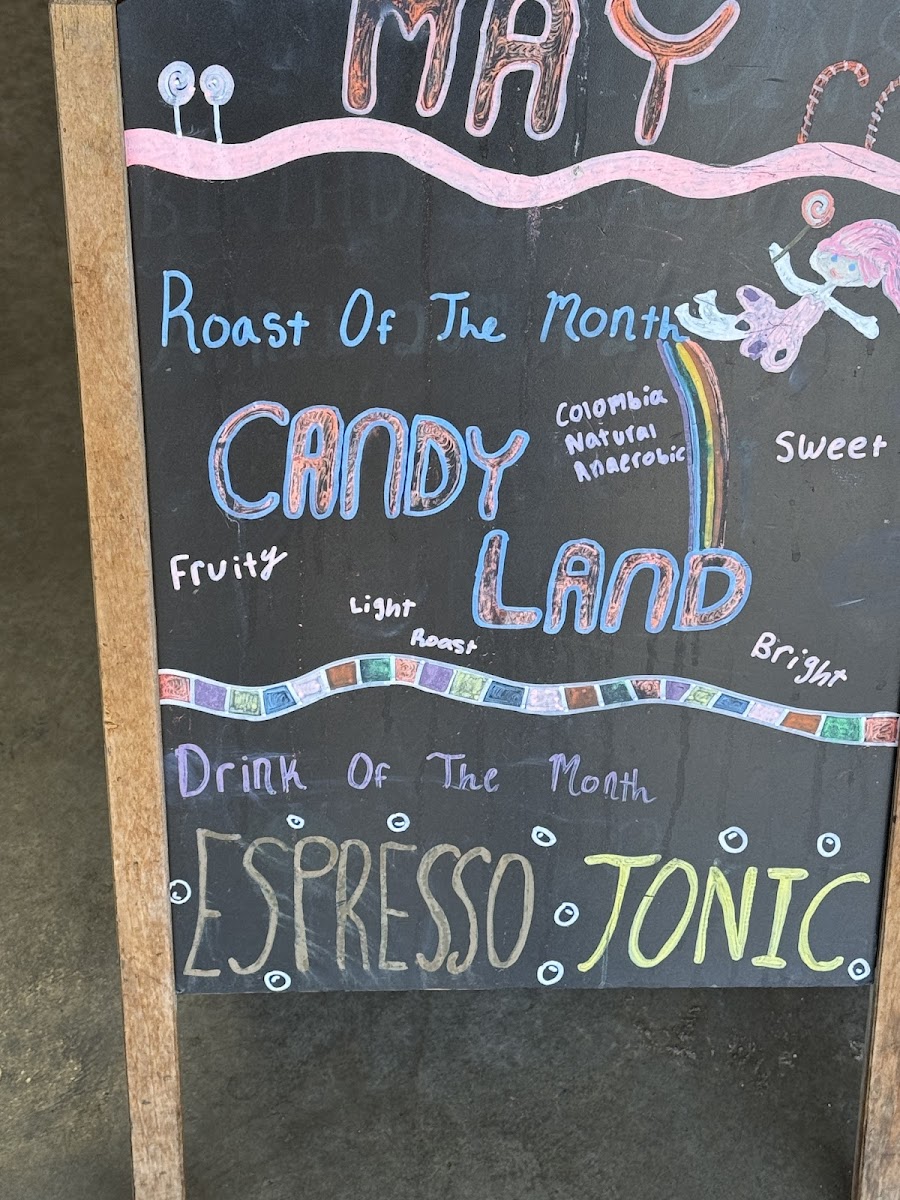 MAY
Roast Of The Month
CANDY
LAND
Colombia
Natural
Anaerobic
Sweet
Fruity
Light
Roast
Bright
Drink Of The Month
ESPRESSO TONIC